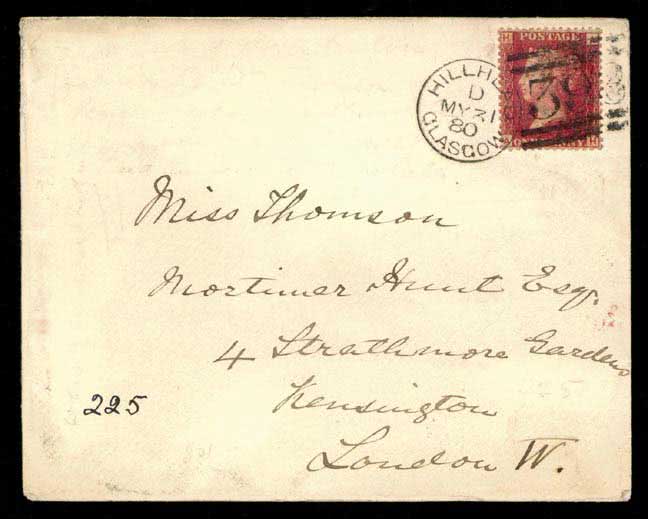 POSTAGE
HILLHE
D
MY 31
80
GLASGOW
Miss Thomson
Mortimer Hunt Esqr.
4 Strathmore Gardens
Kensington
London W.
225